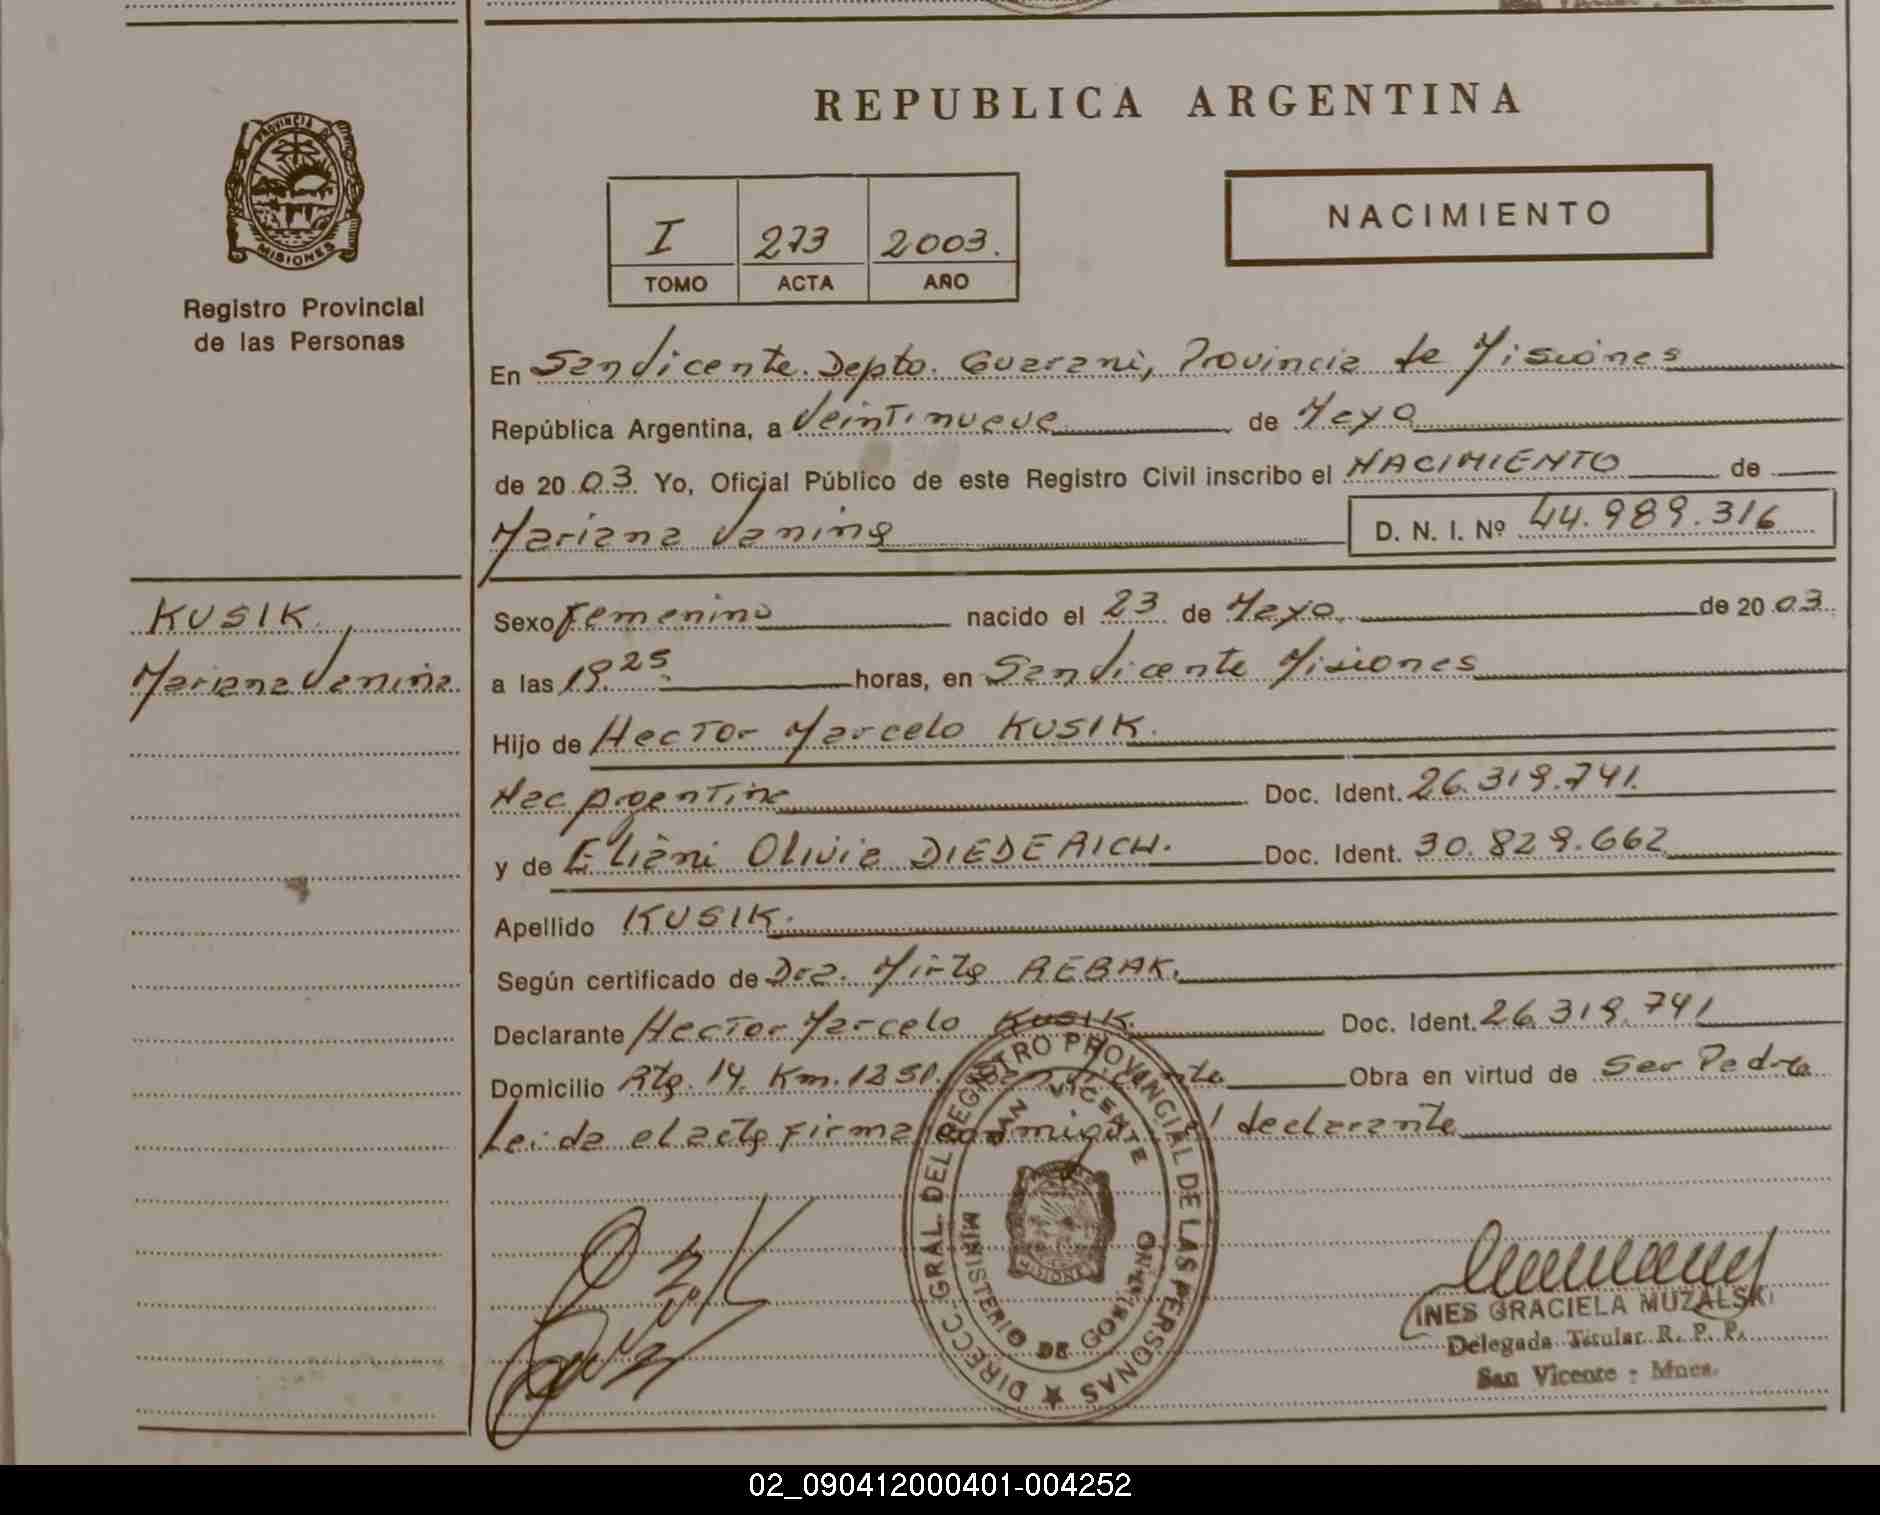 REPUBLICA ARGENTINA
PROVINCIA DE
MISIONES
Registro Provincial
de las Personas
I 273 2003.
TOMO ACTA AÑO
NACIMIENTO
En San Vicente. Depto. Guarani, Provincia de Misiones
República Argentina, a Veintinueve de Mayo
de 20 03 Yo, Oficial Público de este Registro Civil inscribo el NACIMIENTO de
Mariana Vanina D. N. I. Nº 44.989.316
KUSIK.
Mariana Vanina.
Sexo Femenino nacido el 23 de Mayo de 20 03.
a las 19.25. horas, en San Vicente Misiones
Hijo de Hector Marcelo KUSIK.
Nac Argentina Doc. Ident. 26.319.741.
y de Eliani Olivia DIEDERICH. Doc. Ident. 30.829.662
Apellido KUSIK.
Según certificado de Dra. Mirta REBAK.
Declarante Hector Marcelo KUSIK. Doc. Ident. 26.319.741
Domicilio Rta. 14 Km. 1251. San Vicente Obra en virtud de Ser Padre
Leida el acta firma conmigo el declarante
DIRECC. GRAL. DEL REGISTRO PROVINCIAL DE LAS PERSONAS
SAN VICENTE
MISIONES
MINISTERIO DE GOBIERNO
INES GRACIELA MUZALSKI
Delegada Titular R. P. P.
San Vicente - Mnes.
02_090412000401-004252